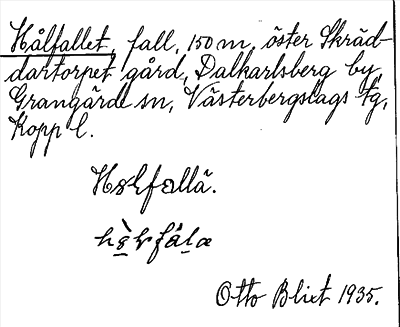 Hålfallet, fall, 150 m, öster Skräd-
dartorpet gård, Dalkarlsberg by,
Grangärde sn, Västerbergslags tg,
Kopp l.
Otto Blixt 1935.